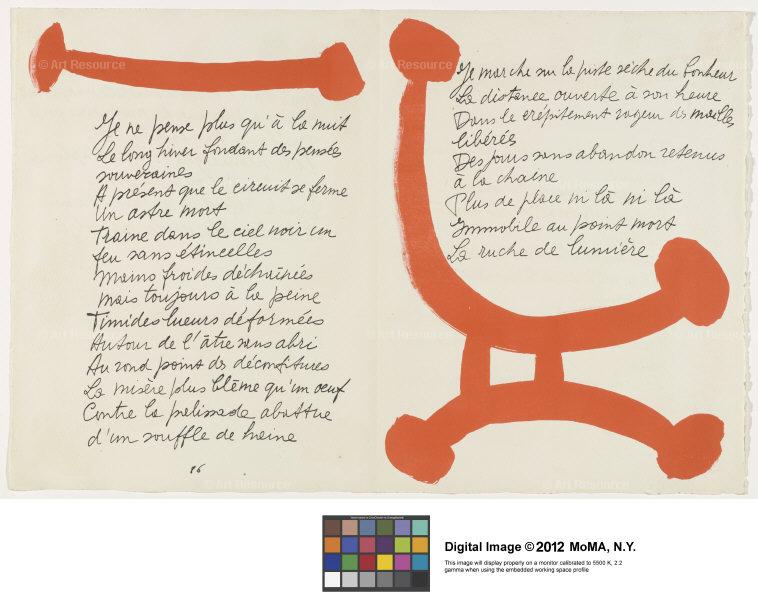 Je ne pense plus qu'à la nuit
Le long hiver fondant des pensées
souveraines
A présent que le circuit se ferme
Un astre mort
Traine dans le ciel noir un
feu sans étincelles
Mains froides déchaînées
Mais toujours à la peine
Timides lueurs déformées
Autour de l'âtre sans abri
Au rond point des déconfitures
La misère plus blême qu'un oeuf
Contre la palissade abattue
d'un souffle de haine
96
Je marche sur la piste sèche du bonheur
La distance ouverte à son heure
Dans le crépitement rageur des mailles
libérés
Des jours sans abandon retenus
à la chaine
Plus de place ni là ni là
Immobile au point mort
La ruche de lumière
© Art Resource
© Art Resource
© Art Resource
© Art Resource
Digital Image © 2012 MoMA, N.Y.
This image will display properly on a monitor calibrated to 5500 K, 2.2
gamma when using the embedded working space profile